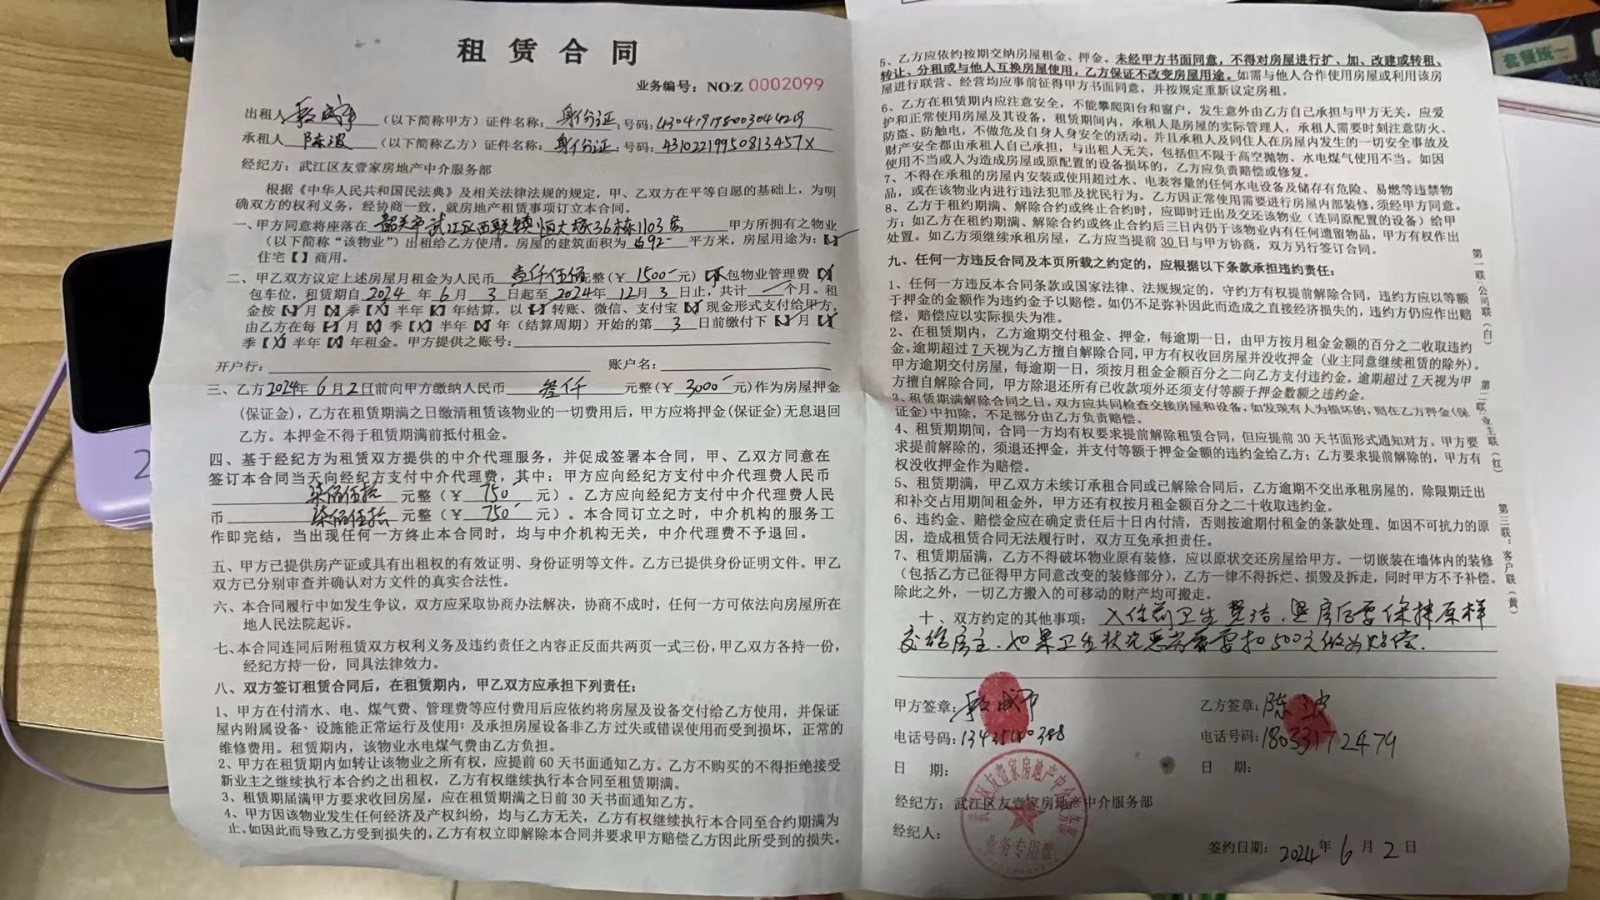 租赁合同
业务编号：NO:Z 0002099
出租人 （以下简称甲方）证件名称：身份证 号码：
承租人 陈波 （以下简称乙方）证件名称：身份证 号码：43102219950813457X
经纪方：武江区友壹家房地产中介服务部
根据《中华人民共和国民法典》及相关法律法规的规定，甲、乙双方在平等自愿的基础上，为明
确双方的权利义务，经协商一致，就房地产租赁事项订立本合同。
一、甲方同意将座落在 韶关市武江区西联镇恒大城36栋1103房 甲方所拥有之物业
（以下简称“该物业”）出租给乙方使用。房屋的建筑面积为 92 平方米，房屋用途为：【】
住宅【 】商用。
二、甲乙双方议定上述房屋月租金为人民币 壹仟伍佰 整（￥ 1500 元）【】包物业管理费【X】
包车位，租赁期自 2024 年 6 月 3 日起至 2024年 12月 3 日止，共计 个月。租
金按【】月【】季【X】半年【】年结算，以【】转账、微信、支付宝【】现金形式支付给甲方，
由乙方在每【】月【】季【X】半年【】年（结算周期）开始的第 3 日前缴付下【】月【】
季【X】半年【】年租金。甲方提供之账号：
开户行： 账户名：
三、乙方 2024年 6 月 2 日前向甲方缴纳人民币 叁仟 元整（￥ 3000 元）作为房屋押金
（保证金），乙方在租赁期满之日缴清租赁该物业的一切费用后，甲方应将押金（保证金）无息退回
乙方。本押金不得于租赁期满前抵付租金。
四、基于经纪方为租赁双方提供的中介代理服务，并促成签署本合同，甲、乙双方同意在
签订本合同当天向经纪方支付中介代理费，其中：甲方应向经纪方支付中介代理费人民币
柒佰伍拾 元整（￥ 750 元）。乙方应向经纪方支付中介代理费人民
币 柒佰伍拾 元整（￥ 750 元）。本合同订立之时，中介机构的服务工
作即完结，当出现任何一方终止本合同时，均与中介机构无关，中介代理费不予退回。
五、甲方已提供房产证或具有出租权的有效证明、身份证明等文件。乙方已提供身份证明文件。甲乙
双方已分别审查并确认对方文件的真实合法性。
六、本合同履行中如发生争议，双方应采取协商办法解决，协商不成时，任何一方可依法向房屋所在
地人民法院起诉。
七、本合同连同后附租赁双方权利义务及违约责任之内容正反面共两页一式三份，甲乙双方各持一份，
经纪方持一份，同具法律效力。
八、双方签订租赁合同后，在租赁期内，甲乙双方应承担下列责任：
1、甲方在付清水、电、煤气费、管理费等应付费用后应依约将房屋及设备交付给乙方使用，并保证
屋内附属设备、设施能正常运行及使用；及承担房屋设备非乙方过失或错误使用而受到损坏，正常的
维修费用。租赁期内，该物业水电煤气费由乙方负担。
2、甲方在租赁期内如转让该物业之所有权，应提前60天书面通知乙方。乙方不购买的不得拒绝接受
新业主之继续执行本合约之出租权，乙方有权继续执行本合同至租赁期满。
3、租赁期届满甲方要求收回房屋，应在租赁期满之日前30天书面通知乙方。
4、甲方因该物业发生任何经济及产权纠纷，均与乙方无关，乙方有权继续执行本合同至合约期满为
止。如因此而导致乙方受到损失的，乙方有权立即解除本合同并要求甲方赔偿乙方因此所受到的损失。
5、乙方应依约按期交纳房屋租金、押金。未经甲方书面同意，不得对房屋进行扩、加、改建或转租、
转让、分租或与他人互换房屋使用，乙方保证不改变房屋用途。如需与他人合作使用房屋或利用该房
屋进行联营、经营均应事前征得甲方书面同意，并按规定重新议定房租。
6、乙方在租赁期内应注意安全，不能攀爬阳台和窗户，发生意外由乙方自己承担与甲方无关，应爱
护和正常使用房屋及其设备，租赁期间内，承租人是房屋的实际管理人，承租人需要时刻注意防火、
防盗、防触电，不做危及自身人身安全的活动。并且承租人及同住人在房屋内发生的一切安全事故及
财产安全都由承租人自己承担，与出租人无关，包括但不限于高空抛物、水电煤气使用不当。如因
使用不当或人为造成房屋或原配置的设备损坏的，乙方应负责赔偿或修复。
7、不得在承租的房屋内安装或使用超过水、电表容量的任何水电设备及储存有危险、易燃等违禁物
品，或在该物业内进行违法犯罪及扰民行为。乙方因正常使用需要进行房屋内部装修，须经甲方同意。
8、乙方于租约期满、解除合约或终止合约时，应即时迁出及交还该物业（连同原配置的设备）给甲
方；如乙方在租约期满、解除合约或终止合约后三日内仍于该物业内有任何遗留物品，甲方有权作出
处置。如乙方须继续承租房屋，乙方应当提前30日与甲方协商，双方另行签订合同。
九、任何一方违反合同及本页所载之约定的，应根据以下条款承担违约责任：
1、任何一方违反本合同条款或国家法律、法规规定的，守约方有权提前解除合同，违约方应以等额
于押金的金额作为违约金予以赔偿。如仍不足弥补因此而造成之直接经济损失的，违约方仍应作出赔
偿，赔偿应以实际损失为准。
2、在租赁期内，乙方逾期交付租金、押金，每逾期一日，由甲方按月租金金额的百分之二收取违约
金。逾期超过7天视为乙方擅自解除合同，甲方有权收回房屋并没收押金（业主同意继续租赁的除外）。
甲方逾期交付房屋，每逾期一日，须按月租金金额百分之二向乙方支付违约金。逾期超过7天视为甲
方擅自解除合同，甲方除退还所有已收款项外还须支付等额于押金数额之违约金。
3、租赁期满解除合同之日，双方应共同检查交接房屋和设备，如发现有人为损坏的，则在乙方押金（保
证金）中扣除，不足部分由乙方负责赔偿。
4、租赁期期间，合同一方均有权要求提前解除租赁合同，但应提前30天书面形式通知对方。甲方要
求提前解除的，须退还押金，并支付等额于押金金额的违约金给乙方；乙方要求提前解除的，甲方有
权没收押金作为赔偿。
5、租赁期满，甲乙双方未续订承租合同或已解除合同后，乙方逾期不交出承租房屋的，除限期迁出
和补交占用期间租金外，甲方还有权按月租金额百分之二十收取违约金。
6、违约金、赔偿金应在确定责任后十日内付清，否则按逾期付租金的条款处理。如因不可抗力的原
因，造成租赁合同无法履行时，双方互免承担责任。
7、租赁期届满，乙方不得破坏物业原有装修，应以原状交还房屋给甲方。一切嵌装在墙体内的装修
（包括乙方已征得甲方同意改变的装修部分），乙方一律不得拆烂、损毁及拆走，同时甲方不予补偿。
除此之外，一切乙方搬入的可移动的财产均可搬走。
十、双方约定的其他事项：入住前卫生整洁，退房后要保持原样
交给房主，如果卫生状况恶劣需要扣500元做为赔偿.
甲方签章： 乙方签章：陈波
电话号码： 电话号码：18033172479
日 期： 日 期：
经纪方：武江区友壹家房地产中介服务部
经纪人：
签约日期：2024年 6 月 2 日
第一联：公司联（白）
第二联：业主联（红）
第三联：客户联（黄）
武江区友壹家房地产中介服务部
业务专用章
套餐统一
2